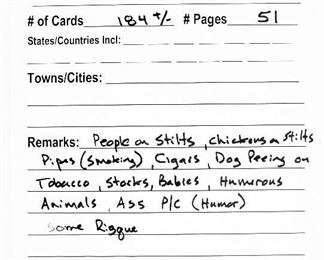 # of Cards 184 +/- # Pages 51
States/Countries Incl:
Towns/Cities:
Remarks: People on Stilts, Chickens on Stilts
Pipes (Smoking), Cigars, Dog Peeing on
Tobacco, Storks, Babies, Humorous
Animals, Ass P/C (Humor)
Some Risque